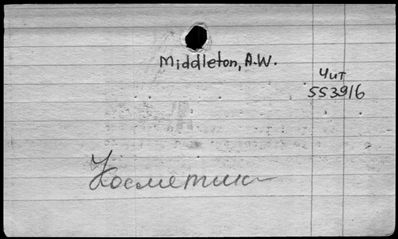 Middleton, A.W.
Чит
553916
Косметика